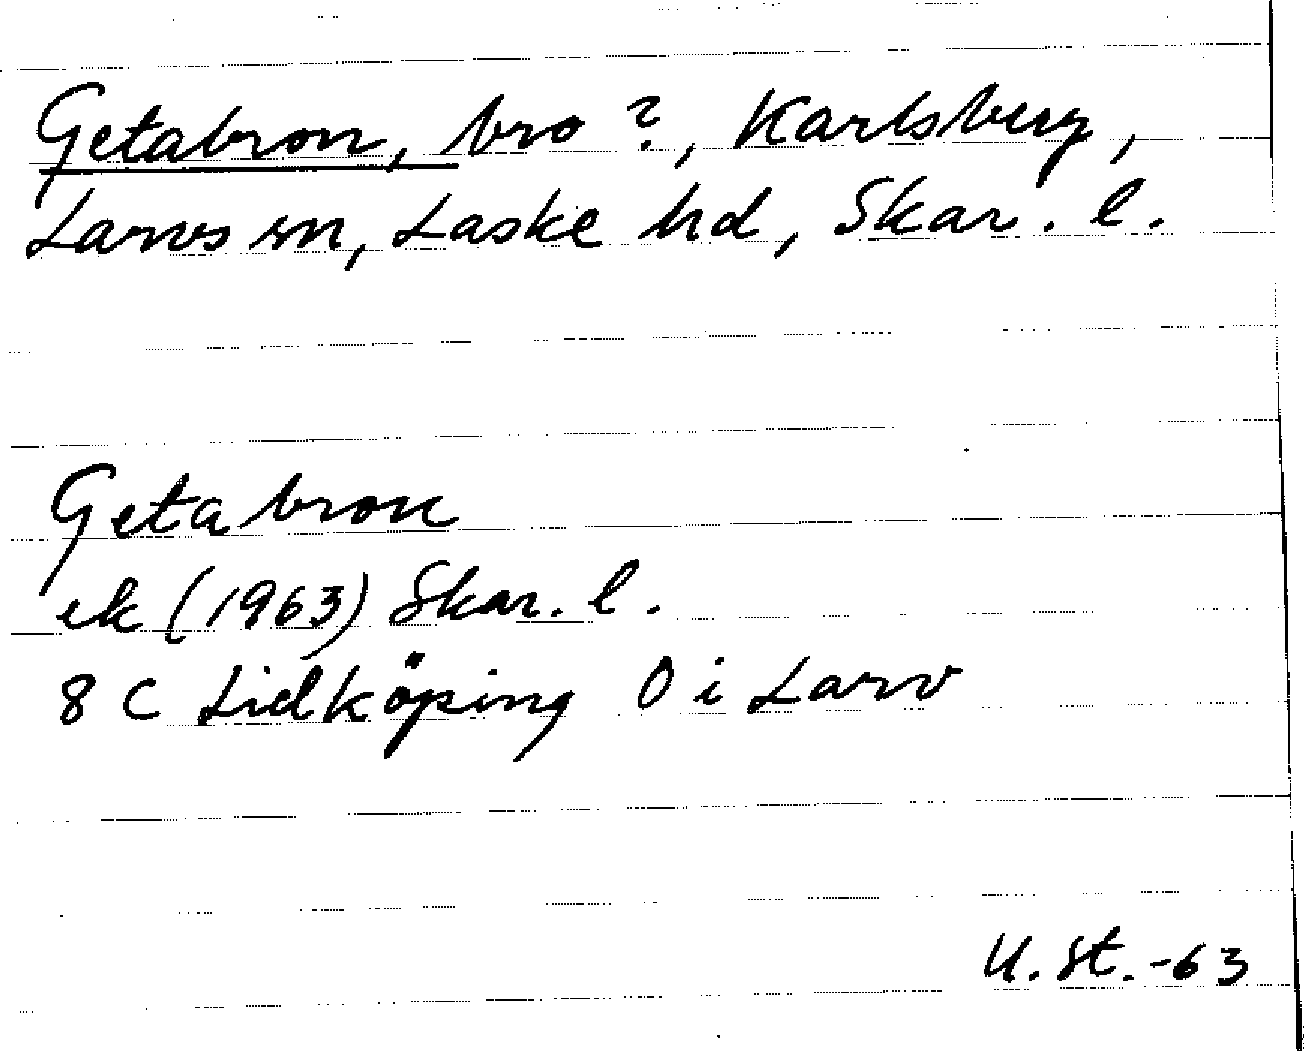 Getabron, bro ?, Karlsberg,
Larvs sn, Laske hd, Skar. l.
Getabron
ek (1963) Skar. l.
8 C Lidköping O i Larv
U. St. -63